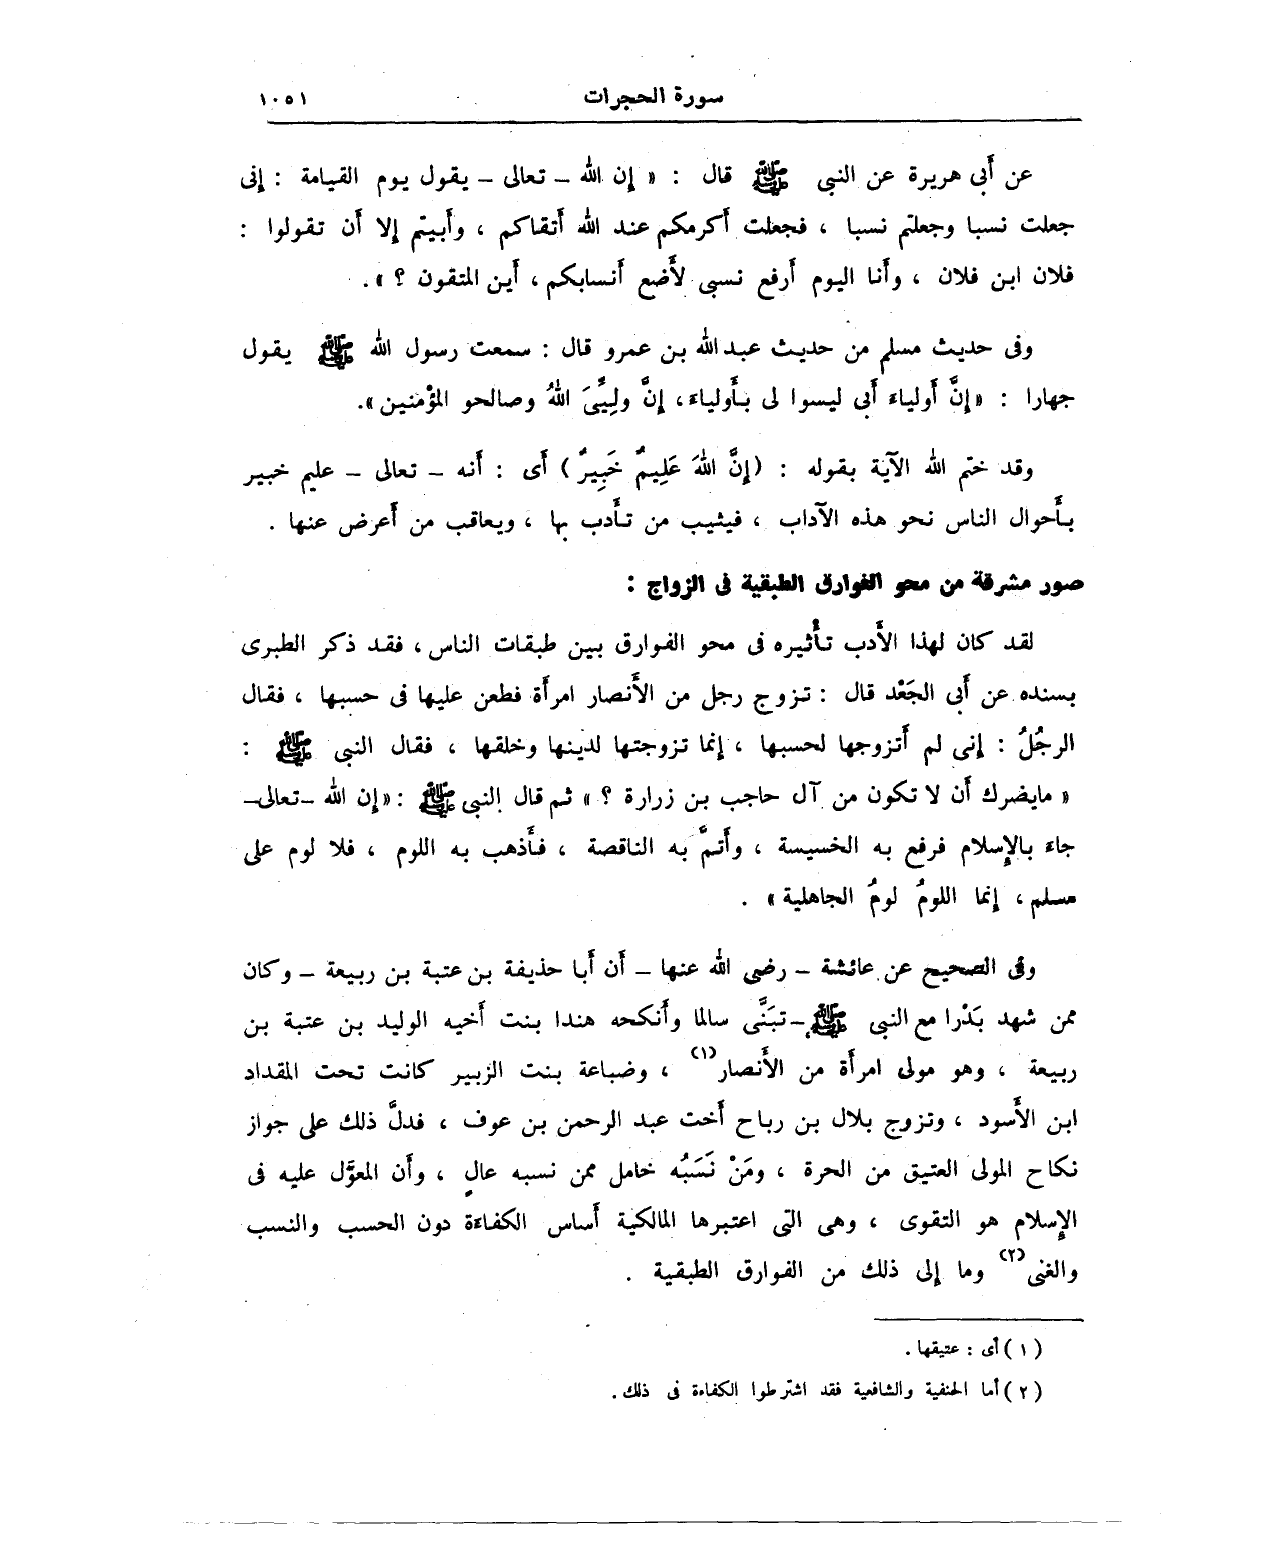 سورة الحجرات
١٠٥١
عن أَبى هريرة عن النبى ﷺ قال : « إن الله – تعالى – يقول يوم القيامة : إنى
جعلت نسبا وجعلتم نسبا ، فجعلت أَكرمكم عند الله أَتقاكم ، وأَبيتم إلا أَن تقولوا :
فلان ابن فلان ، وأَنا اليوم أَرفع نسبى لأَضع أَنسابكم ، أَين المتقون ؟ » .
وفى حديث مسلم من حديث عبد الله بن عمرو قال : سمعت رسول الله ﷺ يقول
جهارا : « إنَّ أَولياء أَبى ليسوا لى بأَولياء ، إنَّ ولِيِّىَ اللهُ وصالحو المؤْمنين » .
وقد ختم الله الآية بقوله : ( إِنَّ اللهَ عَلِيمٌ خَبِيرٌ ) أَى : أَنه – تعالى – عليم خبير
بأَحوال الناس نحو هذه الآداب ، فيثيب من تأَدب بها ، ويعاقب من أَعرض عنها .
صور مشرقة من محو الفوارق الطبقية فى الزواج :
لقد كان لهذا الأَدب تأْثيره فى محو الفوارق بين طبقات الناس ، فقد ذكر الطبرى
بسنده عن أَبى الجَعْد قال : تزوج رجل من الأَنصار امرأَة فطعن عليها فى حسبها ، فقال
الرجُلُ : إنى لم أَتزوجها لحسبها ، إنما تزوجتها لدينها وخلقها ، فقال النبى ﷺ :
« مايضرك أَن لا تكون من آل حاجب بن زرارة ؟ » ثم قال النبى ﷺ : « إن الله – تعالى –
جاءَ بالإِسلام فرفع به الخسيسة ، وأَتمَّ به الناقصة ، فأَذهب به اللوم ، فلا لوم على
مسلم ، إنما اللومُ لومُ الجاهلية » .
وفى الصحيح عن عائشة – رضى الله عنها – أَن أَبا حذيفة بن عتبة بن ربيعة – وكان
ممن شهد بَدْرا مع النبى ﷺ – تبَنَّى سالما وأَنكحه هندا بنت أَخيه الوليد بن عتبة بن
ربيعة ، وهو مولى امرأَة من الأَنصار (١) ، وضباعة بنت الزبير كانت تحت المقداد
ابن الأَسود ، وتزوج بلال بن رباح أَخت عبد الرحمن بن عوف ، فدلَّ ذلك على جواز
نكاح المولى العتيق من الحرة ، ومَنْ نَسَبُه خامل ممن نسبه عالٍ ، وأَن المعوَّل عليه فى
الإِسلام هو التقوى ، وهى التى اعتبرها المالكية أَساس الكفاءَة دون الحسب والنسب
والغنى (٢) وما إلى ذلك من الفوارق الطبقية .
( ١ ) أى : عتيقها .
( ٢ ) أما الحنفية والشافعية فقد اشترطوا الكفاءة فى ذلك .